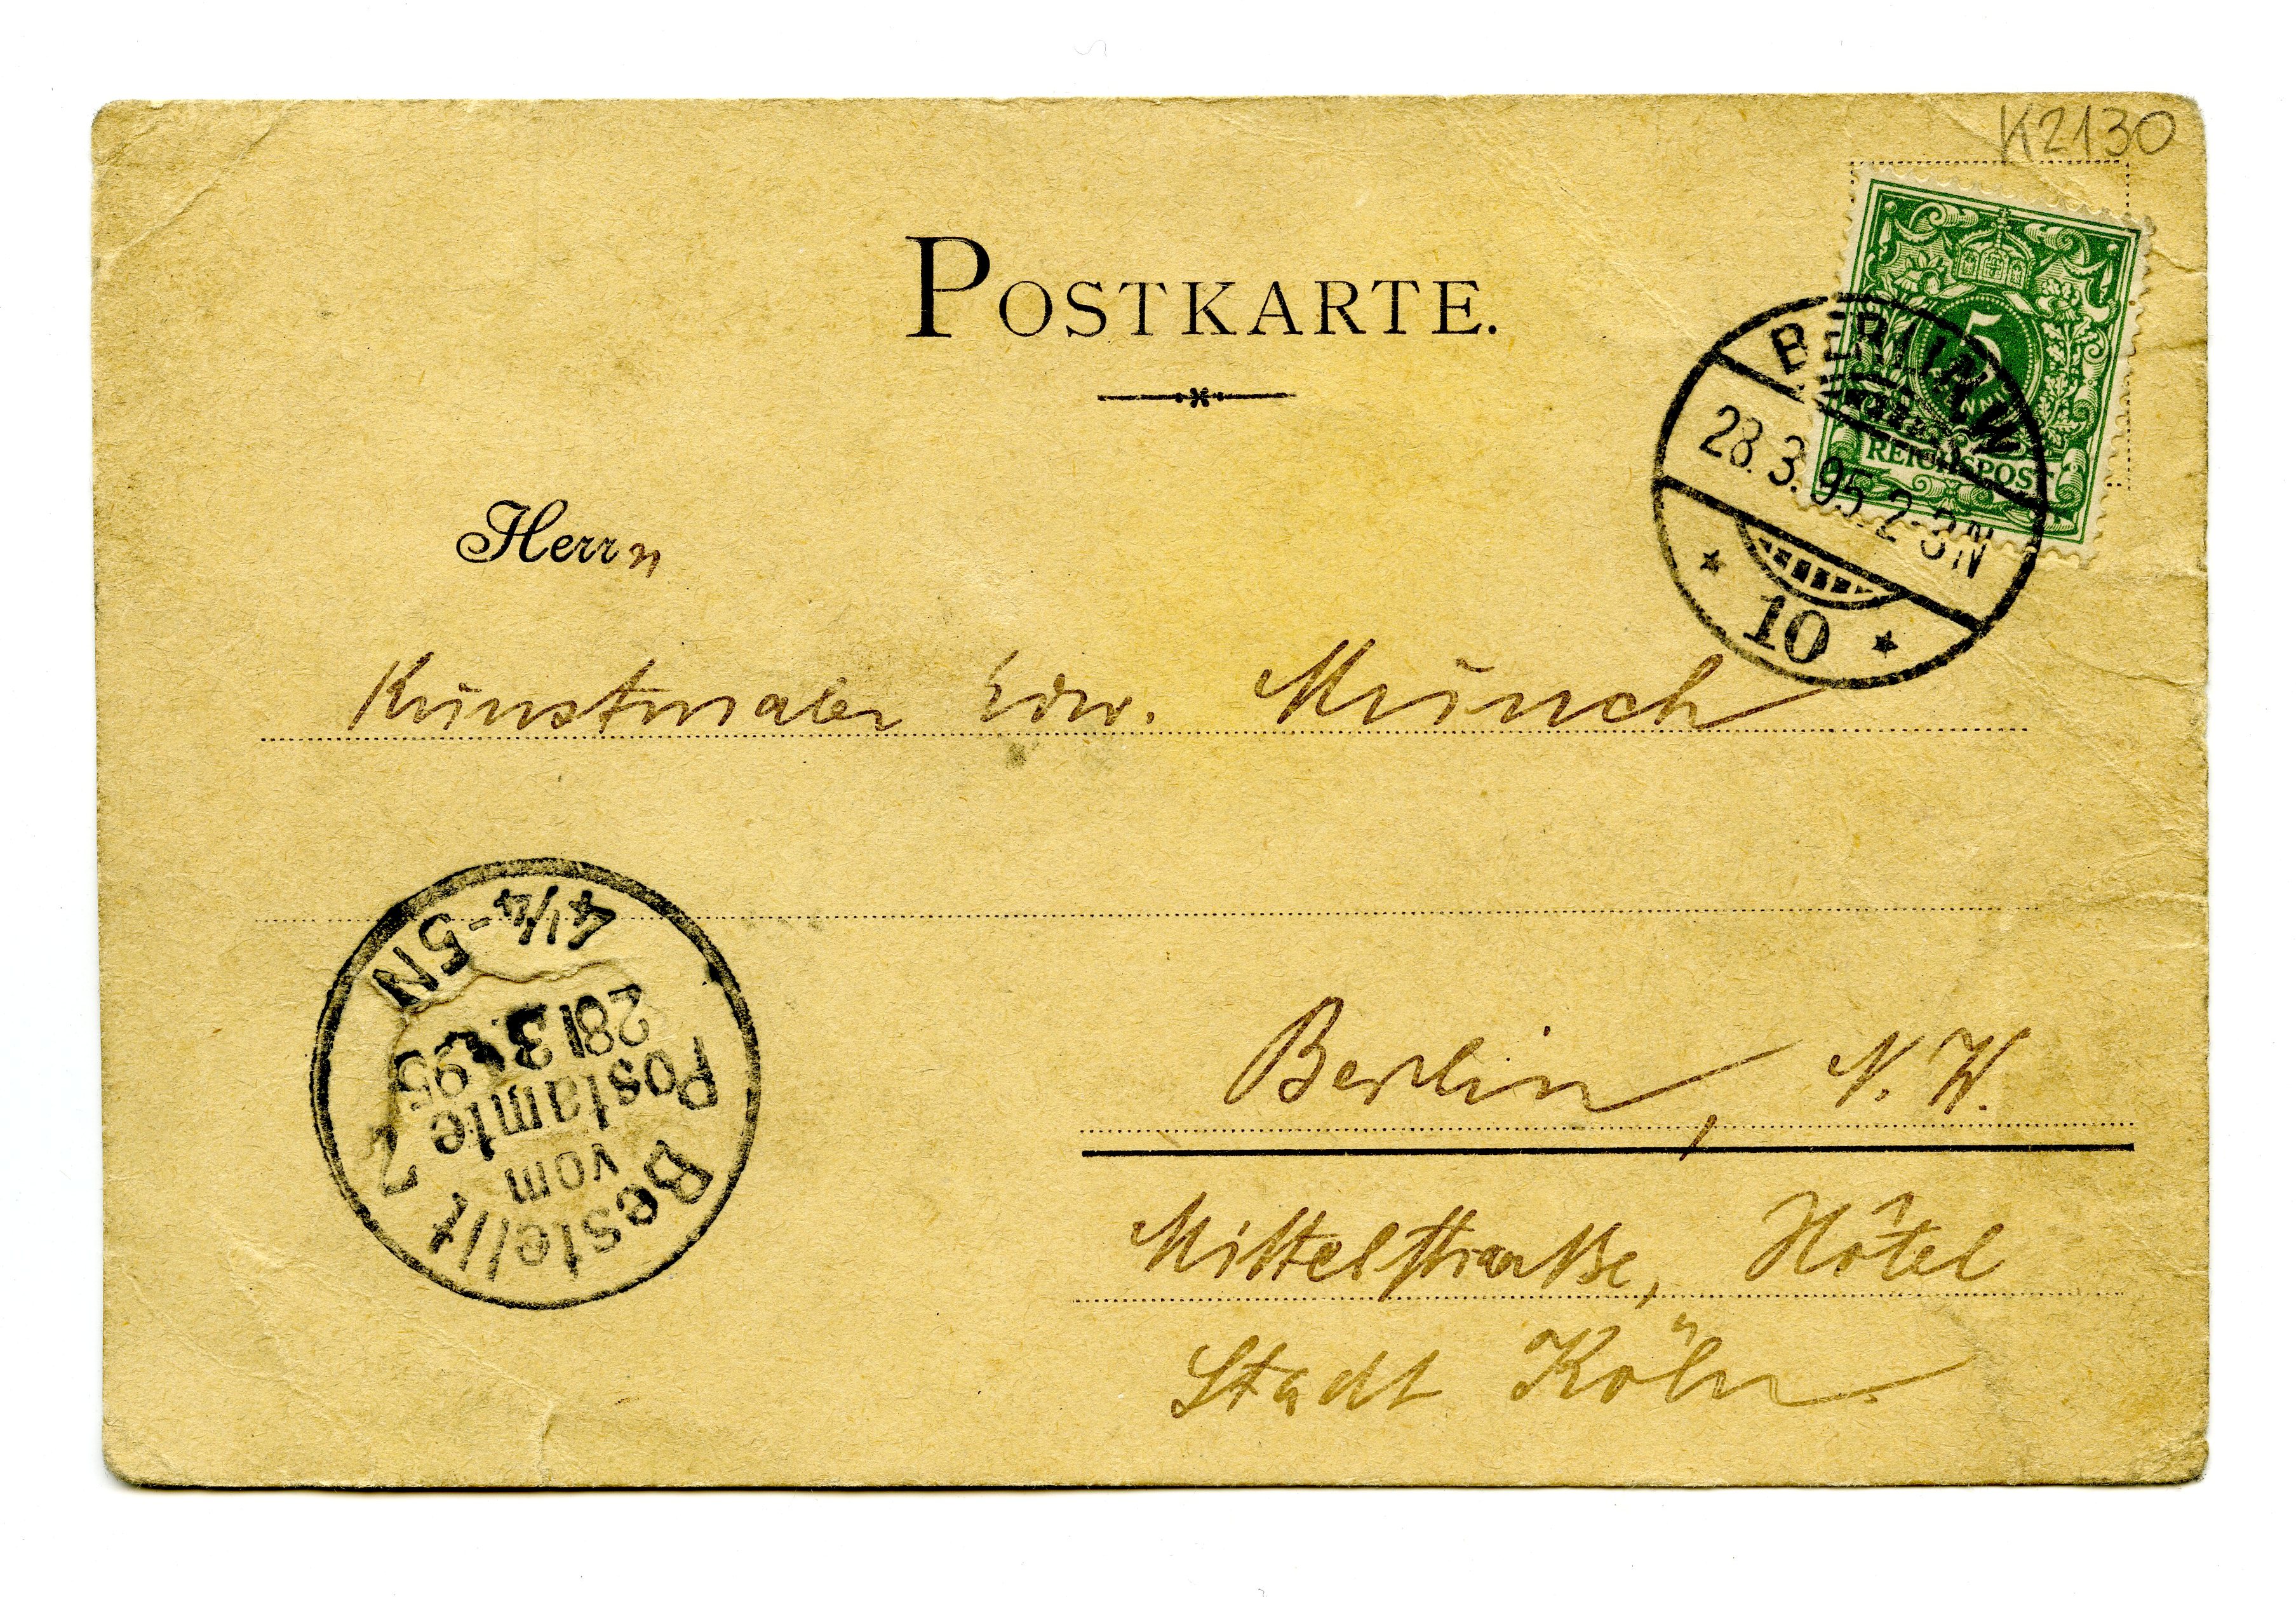 K2130
POSTKARTE.
5
REICHSPOST
BERLIN, N.W.
28.3.95.2-3N
10
Herrn
Kunstmaler Edw. Munch
Bestellt
vom
Postamte 7
28/3 95
4¼-5N
Berlin, N.W.
Mittelstraße, Hôtel
Stadt Köln